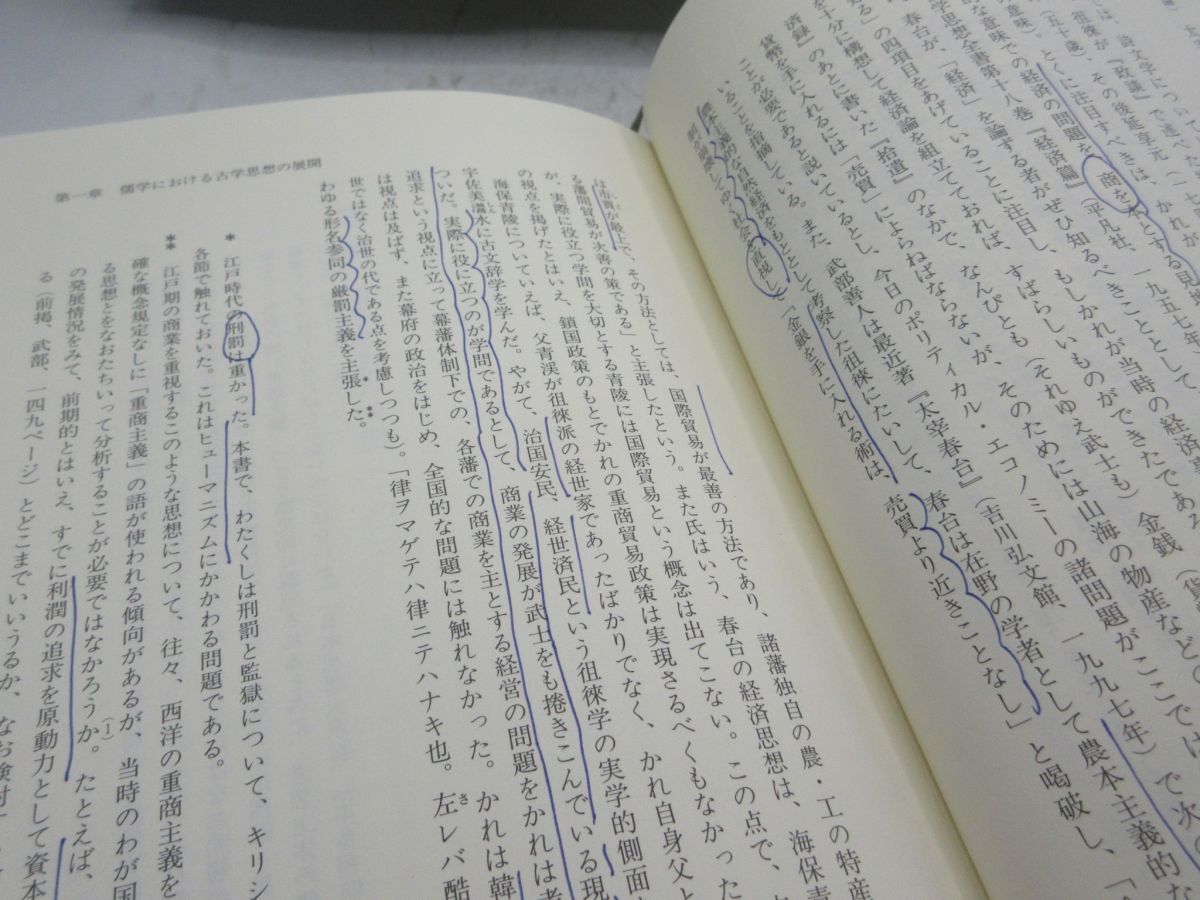 では、詩文学については
徂徠が『政談』で述べたが、
（五十歳）、その後延享元（一七
とくに注目すべきは、かれが
の意味）。経済の問題を、商を本とする見
学思想全書第十八巻『経済篇』（平凡社、一九五七年、
春台が、「経済」を論ずる者がぜひ知るべきこととして
る」の四項目をあげていることに注目し、もしかれが当時の経済
を十分に構想して経済論を組立てておれば、すばらしいものができたであ
済録』のあとに書いた『拾遺』のなかで、なんぴとも（それゆえ武士も）金銭（貨
貨幣を手に入れるには「売買」によらねばならないが、そのためには山海の物産などの
ことが必要であると説いているとし、今日のポリティカル・エコノミーの諸問題がここでは
いることを指摘している。また、武部善人は最近著『太宰春台』（吉川弘文館、一九九七年）で次の
農本主義的な自然経済をもととして考察した徂徠にたいして、春台は在野の学者として農本主義的な
直視して「金銀を手に入れる術は、売買より近きことなし」と喝破し、
第一章　儒学における古学思想の展開
は売買が最上で、その方法としては、国際貿易が最善の方法であり、諸藩独自の農・工の特産
る藩間貿易が次善の策である」と主張したという。また氏はいう、春台の経済思想は、海保青
が、実際に役立つ学問を大切とする青陵には国際貿易という概念は出てこない。この点で、
の視点を掲げたとはいえ、鎖国政策のもとでかれの重商貿易政策は実現さるべくもなかった
海保青陵についていえば、父青渓が徂徠派の経世家であったばかりでなく、かれ自身父と
宇佐美灊水に古文辞学を学んだ。やがて、治国安民、経世済民という徂徠学の実学的側面
ついだ。実際に役に立つのが学問であるとして、商業の発展が武士をも捲きこんでいる現
追求という視点に立って幕藩体制下での、各藩での商業を主とする経営の問題をかれは考
は視点は及ばず、また幕府の政治をはじめ、全国的な問題には触れなかった。かれは韓
世ではなく治世の代である点を考慮しつつも）。「律ヲマゲテハ律ニテハナキ也。左レバ酷
わゆる形名参同の厳罰主義を主張した。
＊　江戸時代の刑罰は重かった。本書で、わたくしは刑罰と監獄について、キリシ
各節で触れておいた。これはヒューマニズムにかかわる問題である。
＊＊　江戸期の商業を重視するこのような思想について、往々、西洋の重商主義を
確な概念規定なしに「重商主義」の語が使われる傾向があるが、当時のわが国
る思想とをなおたちいって分析することが必要ではなかろうか。たとえば、
の発展情況をみて、前期的とはいえ、すでに利潤の追求を原動力として資本
る（前掲、武部、一四九ページ）とどこまでいいうるか、なお検討